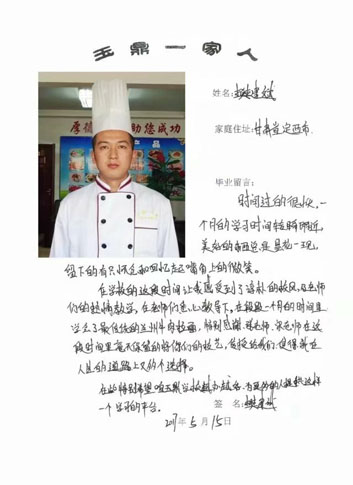 玉鼎一家人
姓名:
厚德 助您成功
家庭住址:甘肃省定西市
毕业留言:
时间过的很快,一
个月的学习时间转瞬即逝,
美好的东西总是昙花一现,
留下的有只怀念和回忆起嘴角上的微笑。
在学校的这段时间让我感受到了 的校风,老师
们的热情教学,在老师们 教导下,在短短一个月的时间里
学会了最传统的兰州牛肉拉面,特别感谢 老师、 老师在这
段时间里毫无保留的将你们的技艺,传授给我们,使得我在
人生的道路上又多个选择。
在此特别希望 玉鼎学校越办越
一个学习的平台。
签 名:
2017年5月15日